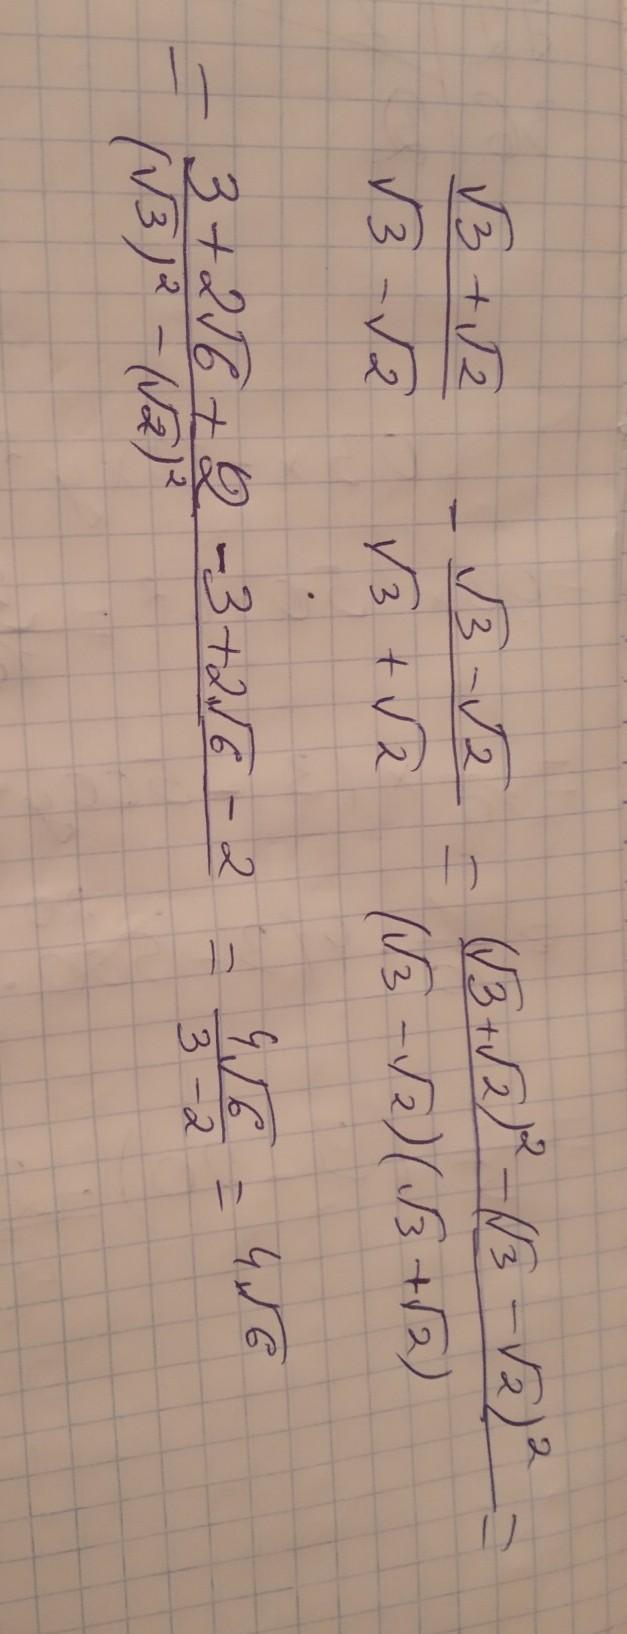 (√3+√2)/(√3-√2) - (√3-√2)/(√3+√2) = ((√3+√2)²-(√3-√2)²)/((√3-√2)(√3+√2)) =
= (3+2√6+2-3+2√6-2)/((√3)²-(√2)²) = 4√6/(3-2) = 4√6